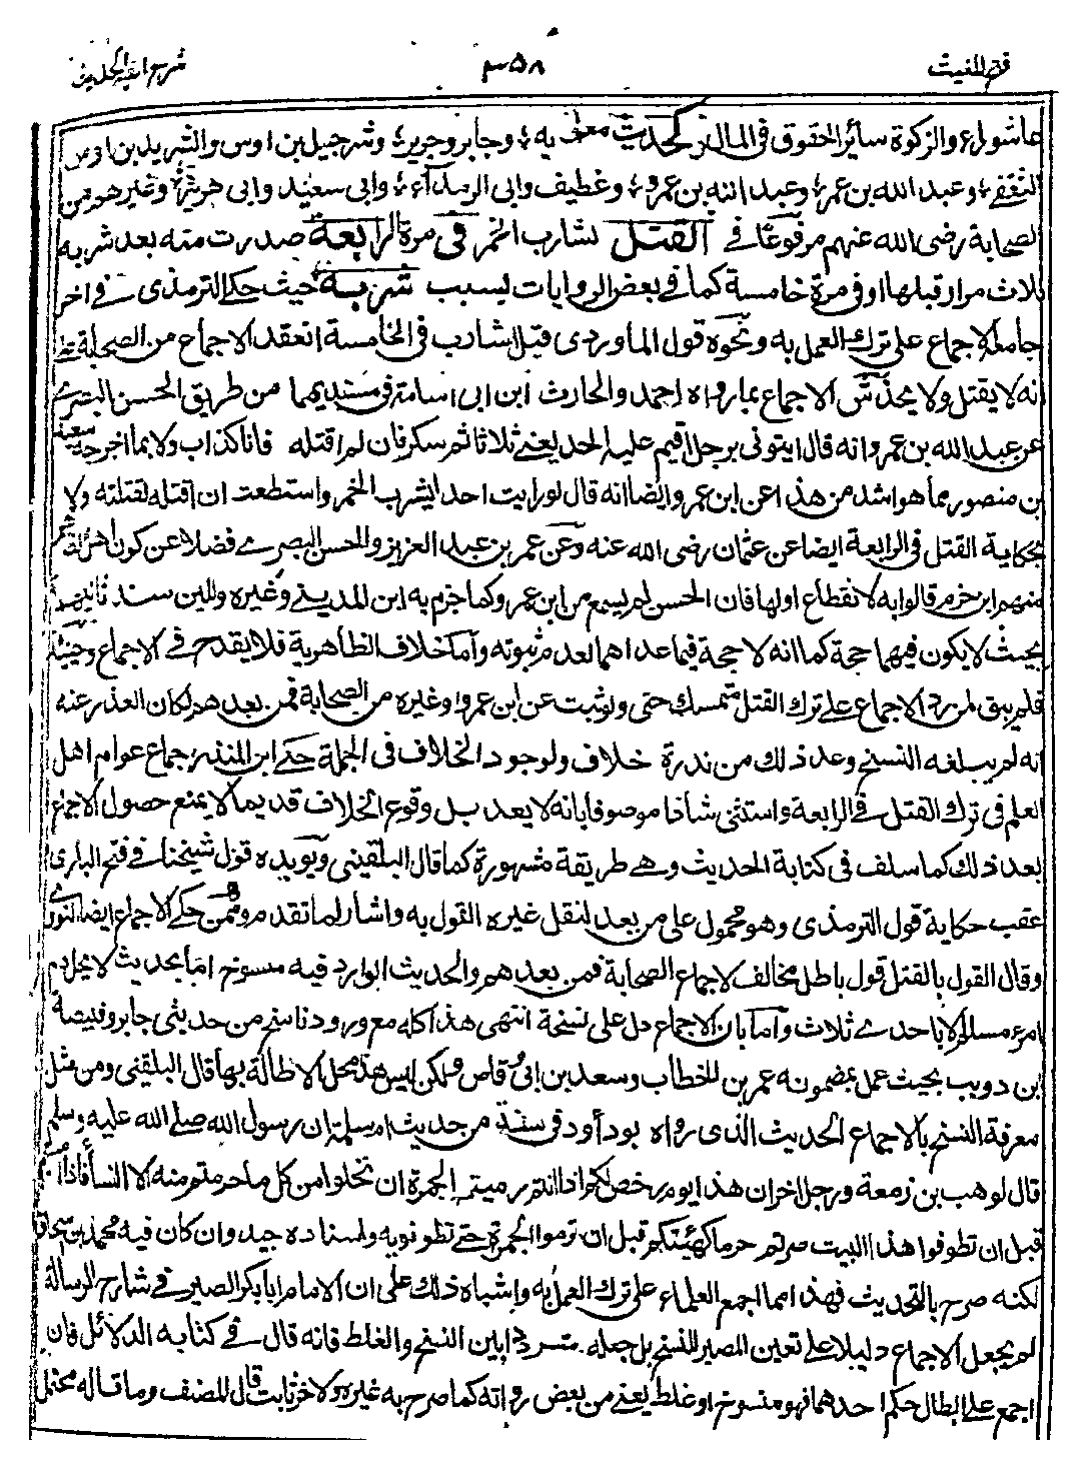 فتح المغيث ٣٥٨ شرح الفية الحديث
عاشوراء والزكوة سائر الحقوق في المال كحديث معوية وجابر وجرير وشرحبيل بن اوس والشريد بن اوس
الثقفي وعبد الله بن عمر وعبد الله بن عمرو وغطيف وابي الرمداء وابي سعيد وابي هريرة وغيرهم من
الصحابة رضى الله عنهم مرفوعا في القتل لشارب الخمر في مرة الرابعة صدرت منه بعد شربه
ثلاث مرار قبلها او في مرة خامسة كما في بعض الروايات بسبب شربه حيث حكى الترمذى في اخر
جامعه الاجماع على ترك العمل به ونحوه قول الماوردى قتل الشارب في الخامسة انعقد الاجماع من الصحابة على
انه لا يقتل ولا يخدش الاجماع بما رواه احمد والحارث ابن ابى اسامة في مسنديهما من طريق الحسن البصري
عن عبد الله بن عمرو انه قال ايتونى برجل اقيم عليه الحد يعني ثلاثا ثم سكر فان لم اقتله فانا كذاب ولا بما اخرجه سعيد
بن منصور مما هو اشد من هذا عن ابن عمر وايضا انه قال لو رايت احدا يشرب الخمر واستطعت ان اقتله لقتلته ولا
بحكاية القتل في الرابعة ايضا عن عثمان رضى الله عنه وعن عمر بن عبد العزيز والحسن البصرى فضلا عن كون اهل الظاهر
منهم ابن حزم قالوا به لانقطاع اولها فان الحسن لم يسمع من ابن عمرو كما جزم به ابن المديني وغيره ولين سند ثانيهما
بحيث لا يكون فيهما حجة كما انه لا حجة فيما عداهما لعدم ثبوته واما خلاف الظاهرية فلا يقدح في الاجماع وحينئذ
فلم يبق لمن رد الاجماع على ترك القتل متمسك حتى ولو ثبت عن ابن عمرو او غيره من الصحابة فمن بعدهم لكان العذر عنه
انه لم يبلغه النسخ وعد ذلك من ندرة خلاف ولوجود الخلاف في الجملة حكى ابن المنذر اجماع عوام اهل
العلم في ترك القتل في الرابعة واستثنى شاذا موصوفا بانه لا يعد بل وقوع الخلاف قديما لا يمنع حصول الاجماع
بعد ذلك كما سلف في كتابة الحديث وهي طريقة مشهورة كما قال البلقيني ويويده قول شيخنا في فتح البارى
عقب حكاية قول الترمذى وهو محمول على من بعد لنقل غيره القول به واشار لما تقدم وممن حكى الاجماع ايضا النووي
وقال القول بالقتل قول باطل مخالف لاجماع الصحابة فمن بعدهم والحديث الوارد فيه منسوخ اما بحديث لا يحل دم
امرء مسلم الا باحدى ثلاث واما بان الاجماع دل على نسخة انتهى هذا كله مع ورود ناسخ من حديثى جابر وقبيصة
ابن دويب بحيث عمل بمضمونه عمر بن الخطاب وسعد بن ابى وقاص ولكن ليس هذا محل الاطالة بها قال البلقيني ومن مثل
معرفة النسخ بالاجماع الحديث الذى رواه بو داود في سننه من حديث ام سلمة ان رسول الله صلى الله عليه وسلم
قال لوهب بن زمعة ورجل اخر ان هذا يوم رخص لكم اذا انتم رميتم الجمرة ان تحلوا من كل ما حرمتم منه الا النسا فاذا امسيتم
قبل ان تطوفوا هذا البيت صرتم حرما كهيئتكم قبل ان ترموا الجمرة حتى تطوفوا به واسناده جيد وان كان فيه محمد بن اسحاق
لكنه صرح بالتحديث فهذا مما اجمع العلماء على ترك العمل به واشباه ذلك على ان الامام ابا بكر الصيرفى شارح الرسالة
لم يجعل الاجماع دليلا على تعين المصير للنسخ بل جعله مترددا بين النسخ والغلط فانه قال في كتابه الدلائل فان
اجمع على ابطال حكم احدهما فهو منسوخ او غلط يعني من بعض رواته كما صرح به غيره ولاخر ثابت قال المصنف وما قاله محتمل